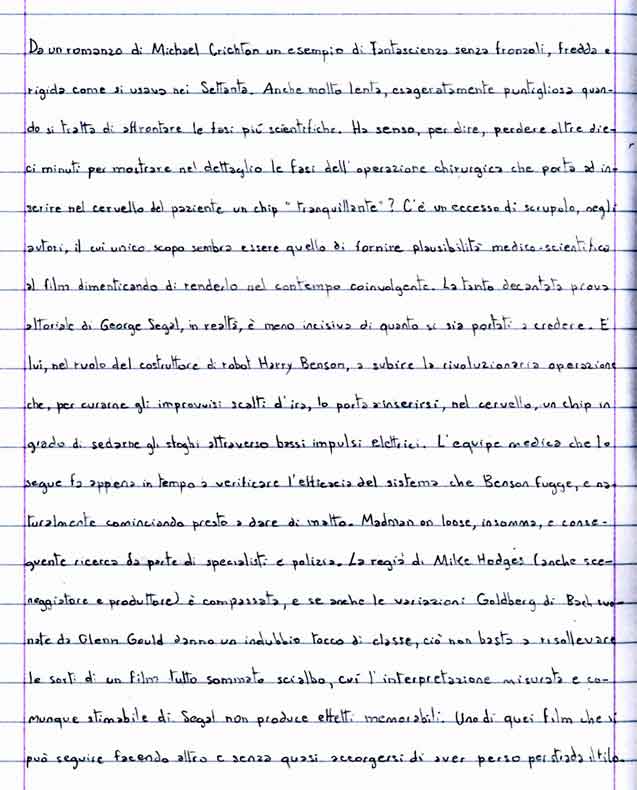 Da un romanzo di Michael Crichton un esempio di fantascienza senza fronzoli, fredda e
rigida come si usava nei Settanta. Anche molto lenta, esageratamente puntigliosa quan-
do si tratta di affrontare le fasi più scientifiche. Ha senso, per dire, perdere oltre die-
ci minuti per mostrare nel dettaglio le fasi dell'operazione chirurgica che porta ad in-
serire nel cervello del paziente un chip "tranquillante"? C'è un eccesso di scrupolo, negli
autori, il cui unico scopo sembra essere quello di fornire plausibilità medico-scientifica
al film dimenticando di renderlo nel contempo coinvolgente. La tanto decantata prova
attoriale di George Segal, in realtà, è meno incisiva di quanto si sia portati a credere. E'
lui, nel ruolo del costruttore di robot Harry Benson, a subire la rivoluzionaria operazione
che, per curarne gli improvvisi scatti d'ira, lo porta a inserirsi, nel cervello, un chip in
grado di sedarne gli sfoghi attraverso bassi impulsi elettrici. L'equipe medica che lo
segue fa appena in tempo a verificare l'efficacia del sistema che Benson fugge, e na-
turalmente cominciando presto a dare di matto. Madman on loose, insomma, e conse-
guente ricerca da parte di specialisti e polizia. La regia di Mike Hodges (anche sce-
neggiatore e produttore) è compassata, e se anche le variazioni Goldberg di Bach suo-
nate da Glenn Gould danno un indubbio tocco di classe, ciò non basta a risollevare
le sorti di un film tutto sommato scialbo, cui l'interpretazione misurata e co-
munque stimabile di Segal non produce effetti memorabili. Uno di quei film che si
può seguire facendo altro e senza quasi accorgersi di aver perso per strada il filo.